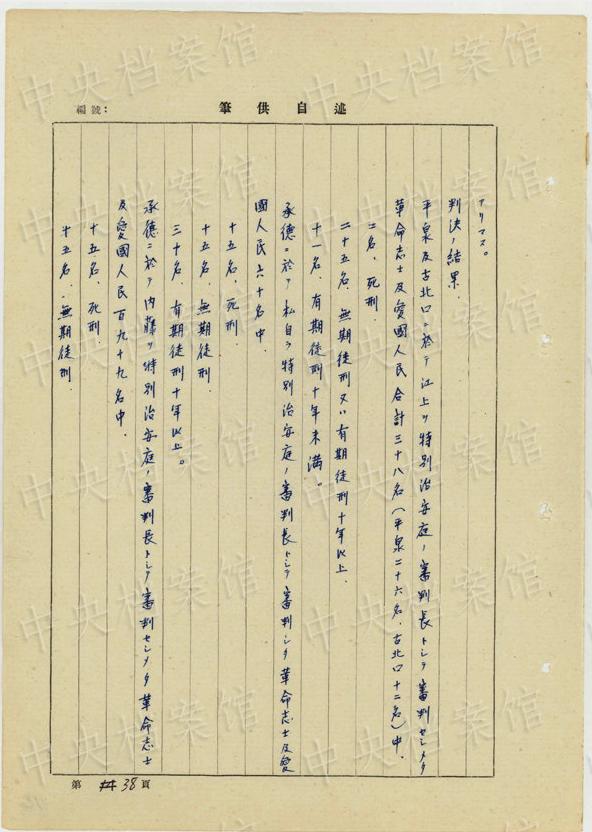 編號：
述自供筆
アリマス。
判決ノ結果．
平泉及古北口ニ於テ江上ヲ特別治安庭ノ審判長トシテ審判セシメタ
革命志士及愛國人民合計三十八名（平泉二十六名．古北口十二名）中．
二名．死刑．
二十五名．無期徒刑又ハ有期徒刑十年以上．
十一名．有期徒刑十年未満。
承德ニ於テ私自ラ特別治安庭ノ審判長トシテ審判シタ革命志士及愛
國人民六十名中．
十五名．死刑
十五名．無期徒刑．
三十名．有期徒刑十年以上。
承德ニ於テ内藤ヲ特別治安庭ノ審判長トシテ審判セシメタ革命志士
及愛國人民百九十九名中．
十五名．死刑．
十五名．無期徒刑．
第 38 頁
中央档案馆